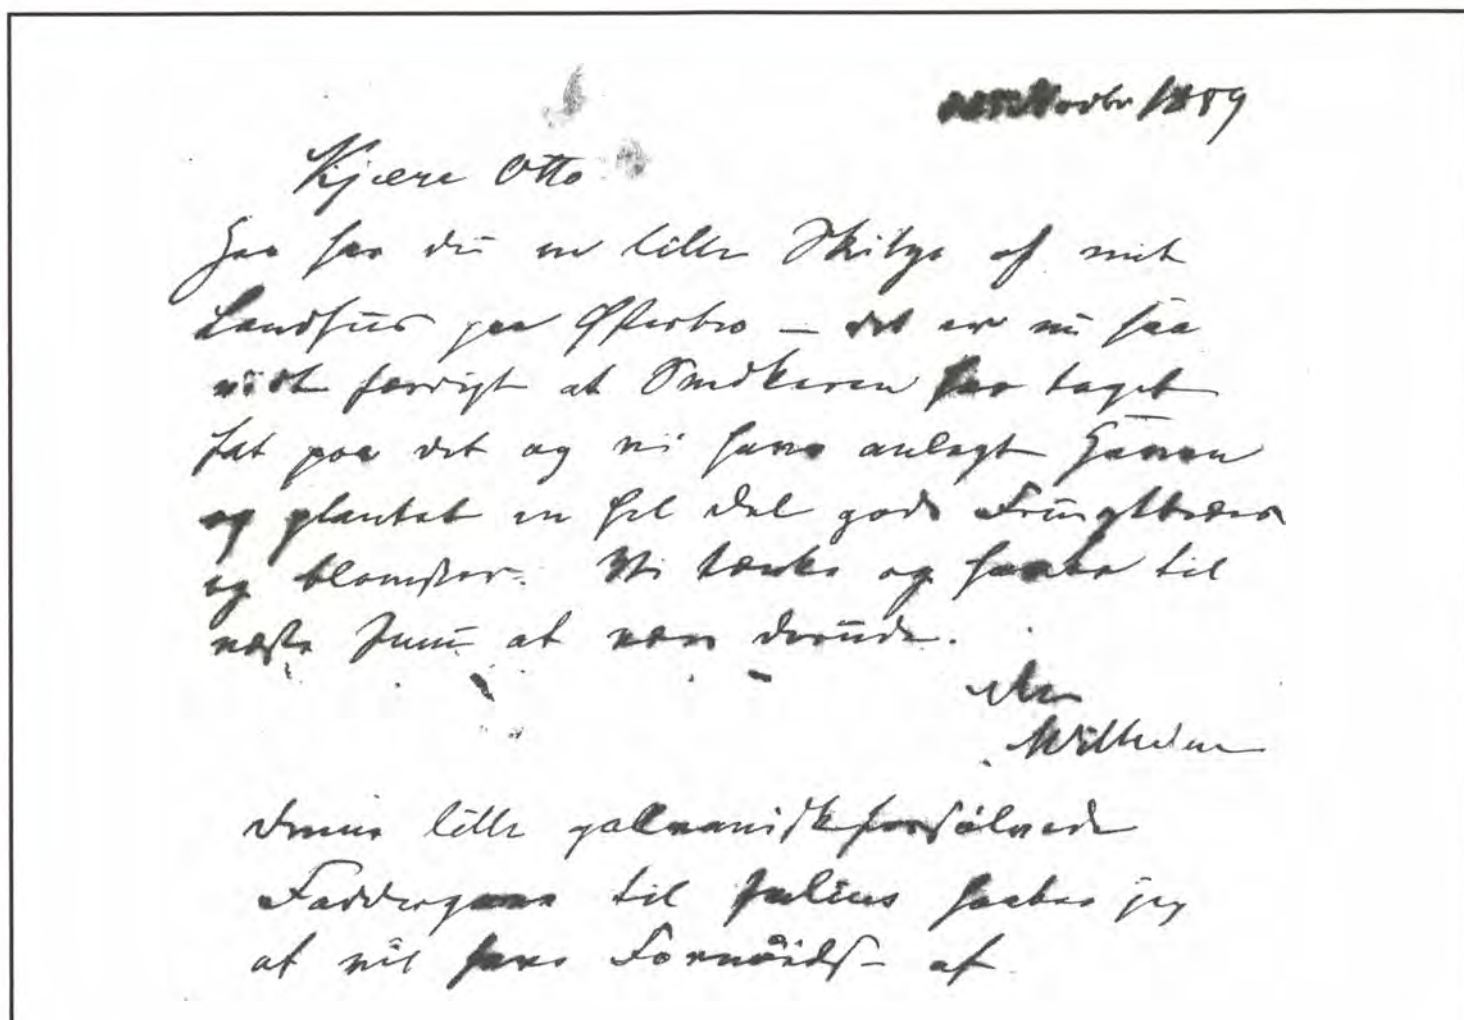 Novbr 1889
Kjære Otto
Her har du en lille Skitze af mit
Landhuus paa Østerbro — det er nu saa
vidt færdigt at Snedkeren har taget
fat paa det og vi have anlagt Haven
og plantet en hel del gode Frugttræer
og blomster. Vi tænke og haabe til
næste Juni at være derude.
Din
Wilhelm
denne lille galvanisk forsølvede
Faddergave til Julius haaber jeg
at vil have Fornøiels– af